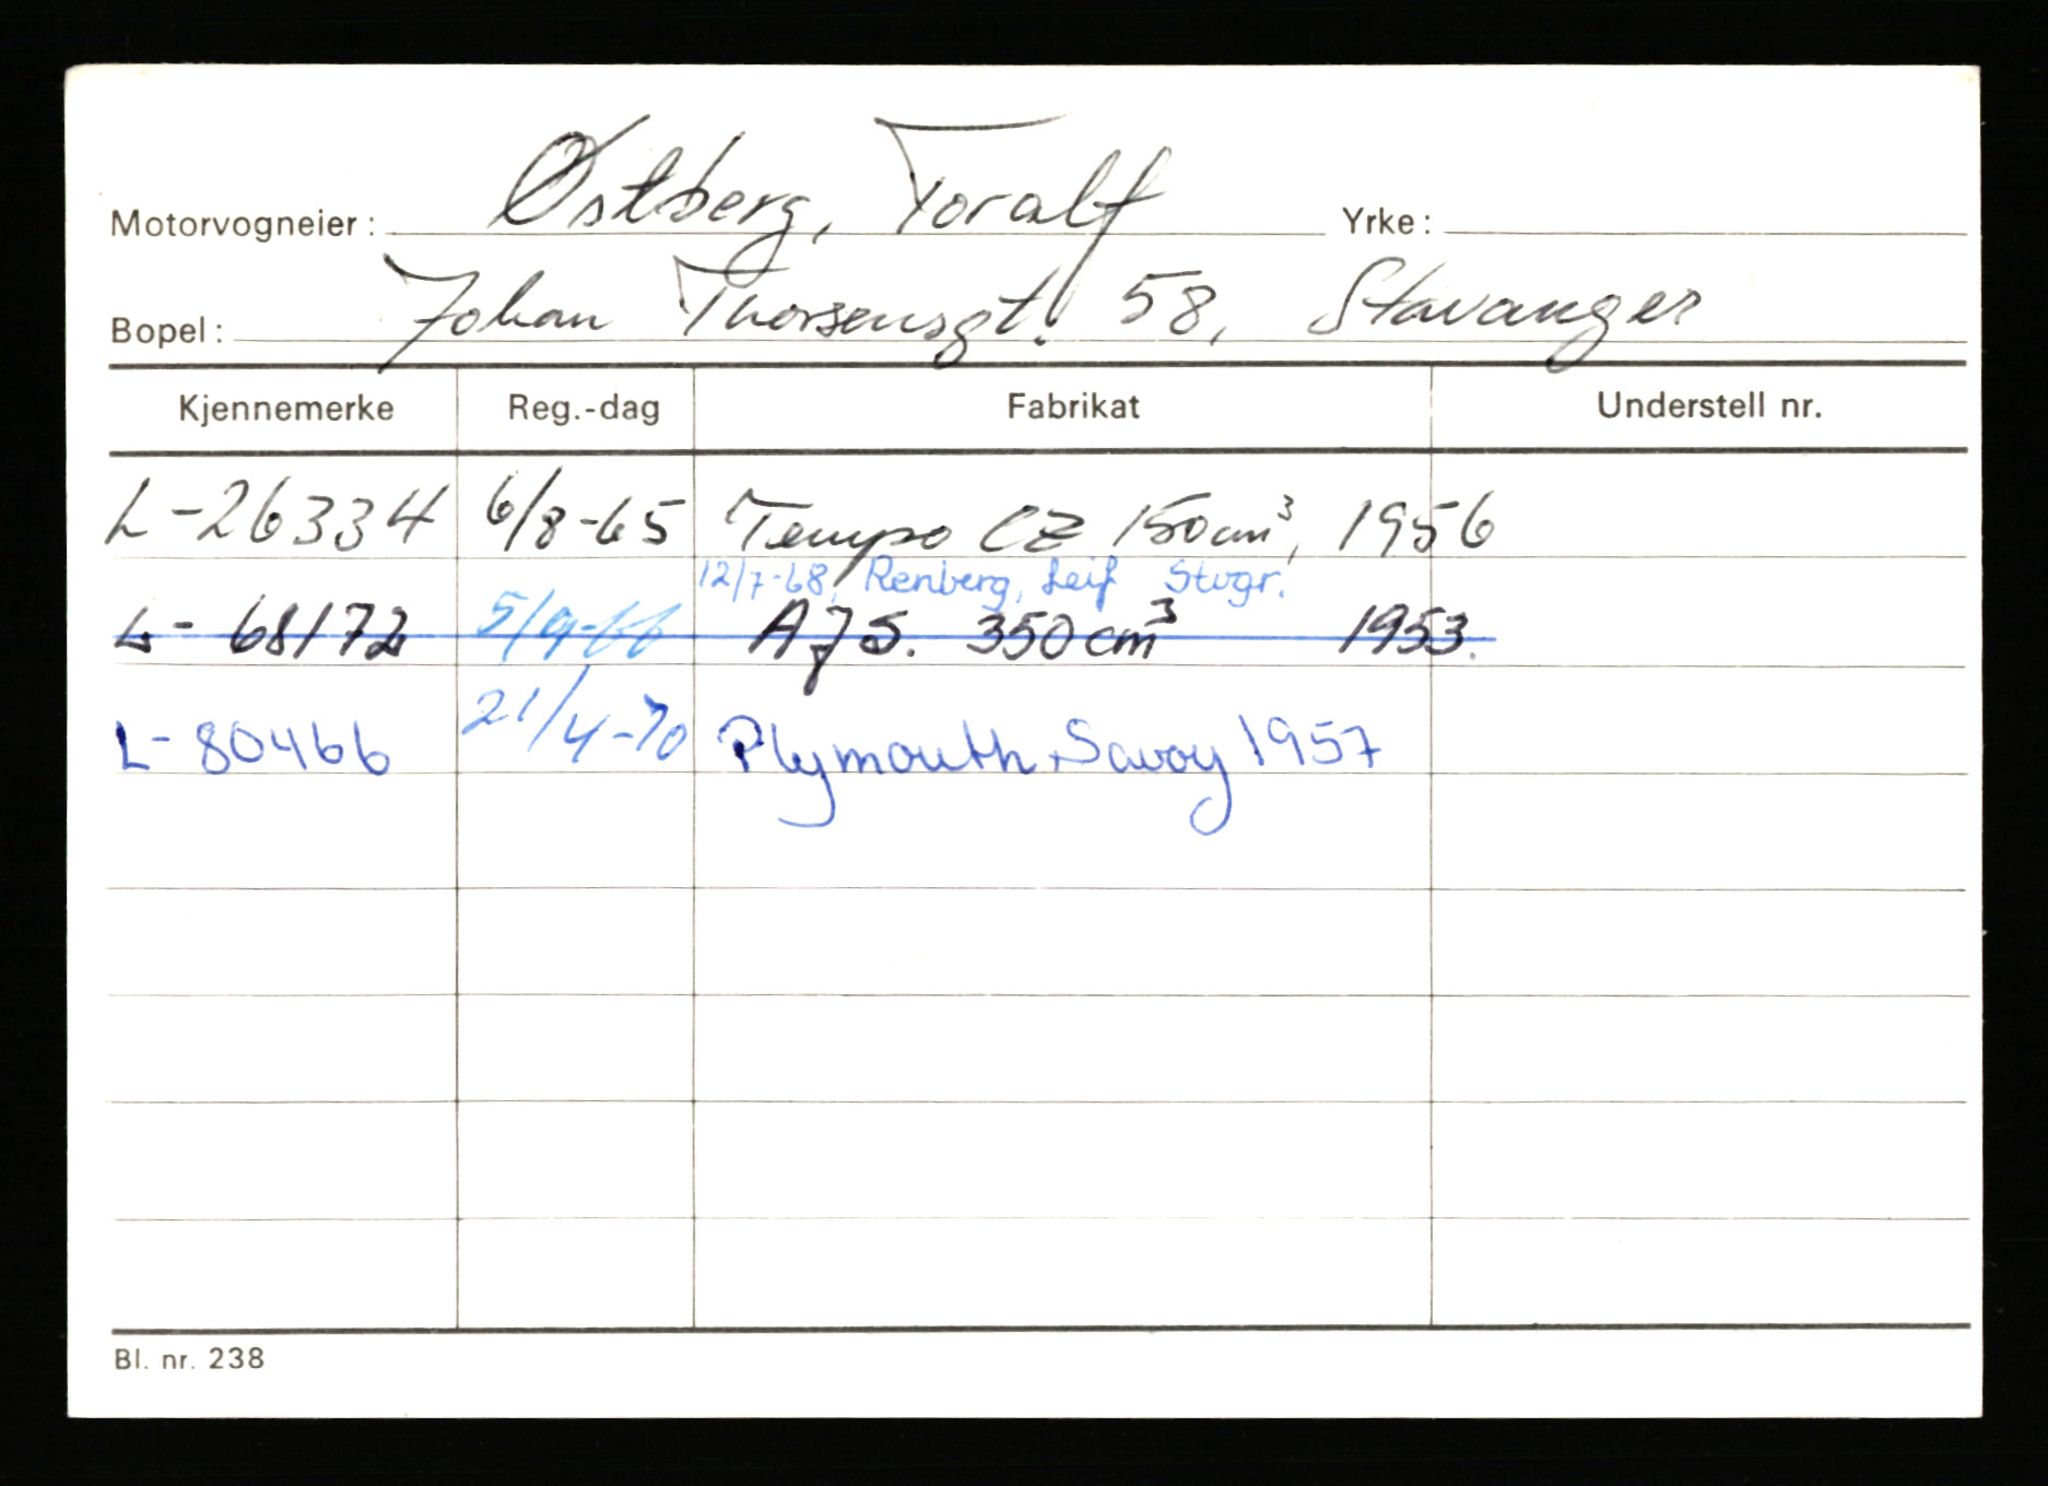 Motorvogneier: Østberg, Toralf Yrke:
Bopel: Johan Thorsensgt. 58, Stavanger
Kjennemerke Reg.-dag Fabrikat Understell nr.
L-26334 6/8-65 Tempo CZ 150 cm³, 1956
12/7-68, Renberg, Leif Stvgr.
L- 68172 5/9-66 A J S. 350 cm³ 1953.
L- 80466 21/4-70 Plymouth Savoy 1957
Bl. nr. 238